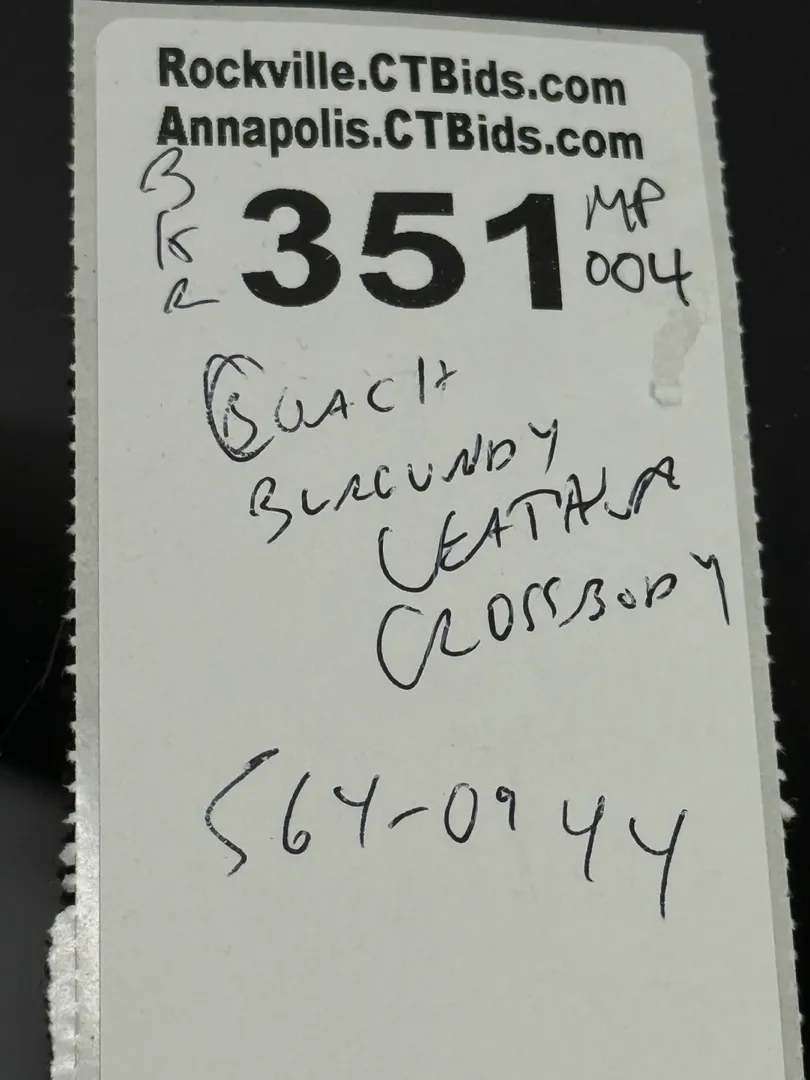 Rockville.CTBids.com
Annapolis.CTBids.com
BKR 351 MP 004
COACH
BURGUNDY
LEATHER
CROSSBODY
564-0944